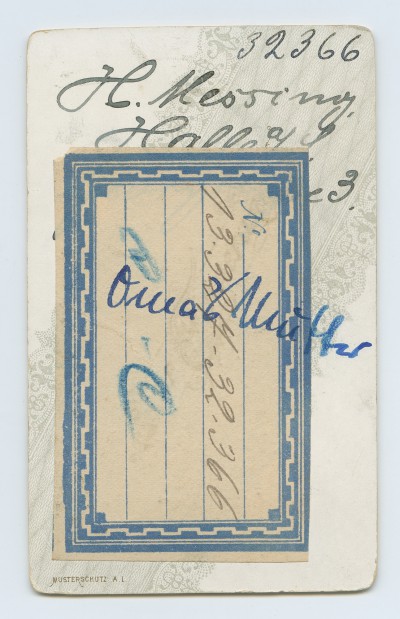 32366
H. Messing,
Halle a/S
3.
No.
13.324-32.366
Omas Mutter
MUSTERSCHUTZ A. L.